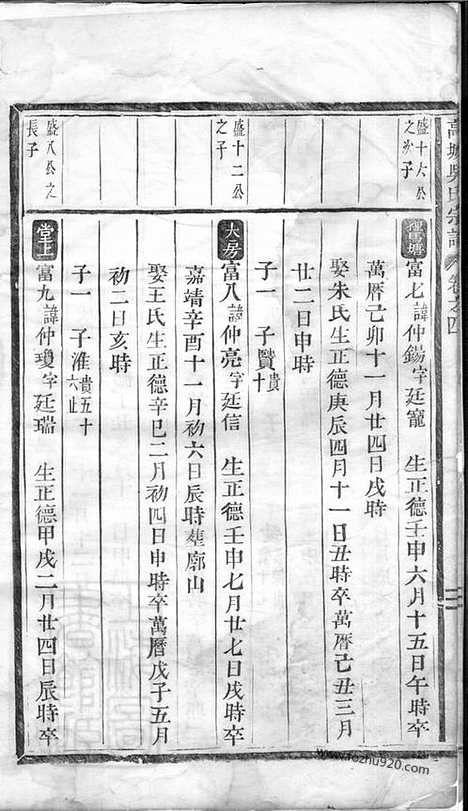 高塘吳氏宗譜 卷之四
盛十六公
之次子
富七諱仲錫字廷寵 生正德壬申六月十五日午時卒
萬曆己卯十一月廿四日戌時
娶朱氏生正德庚辰四月十一日丑時卒萬曆己丑三月
廿二日申時
子一 子賢貴十
盛十二公
之子
大房
富八諱仲亮字廷信 生正德壬申七月廿七日戌時卒
嘉靖辛酉十一月初六日辰時葬廓山
娶王氏生正德辛巳二月初四日申時卒萬曆戊子五月
初二日亥時
子一 子淮貴五十六止
盛八公之
長子
堂上
富九諱仲瓊字廷瑞 生正德甲戌二月廿四日辰時卒
www.fozhu920.com